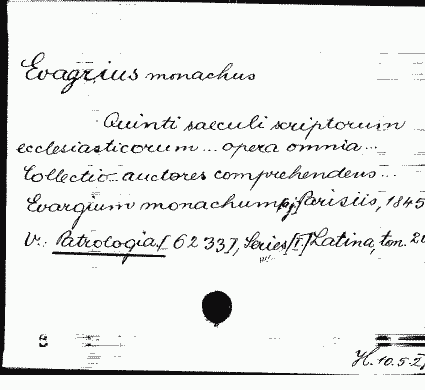 Evagrius monachus
Quinti saeculi scriptorum
ecclesiasticorum ... opera omnia ...
Collectio auctores comprehendens ...
Evargium monachum, Parisiis, 1845
V. Patrologia [6233], Series [I] Latina, tom. 20
8
H. 10.5-